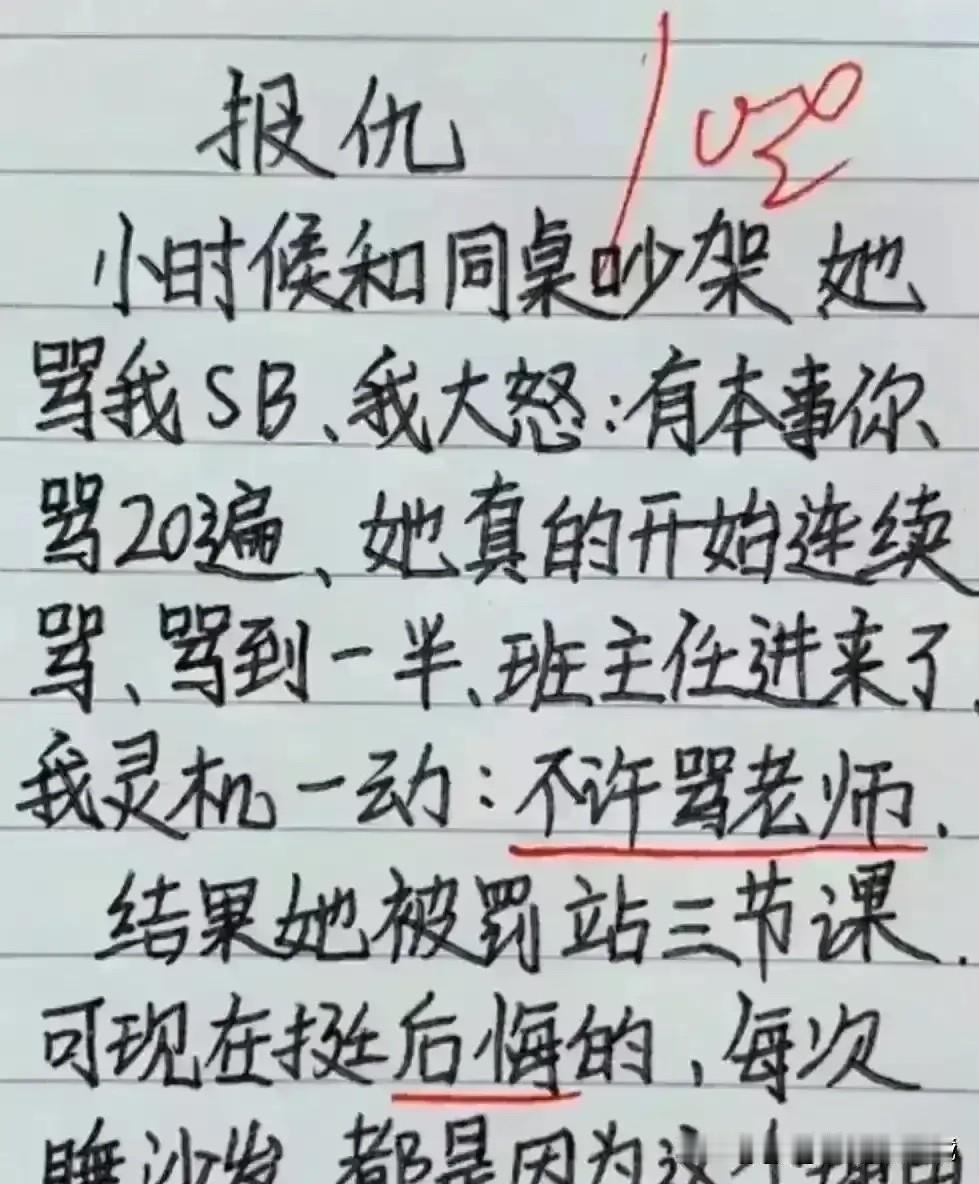 报仇
小时候和同桌吵架 她
骂我SB、我大怒:有本事你、
骂20遍、她真的开始连续
骂、骂到一半、班主任进来了、
我灵机一动:不许骂老师.
结果她被罚站三节课.
可现在挺后悔的,每次
睡沙发 都是因为这个理由